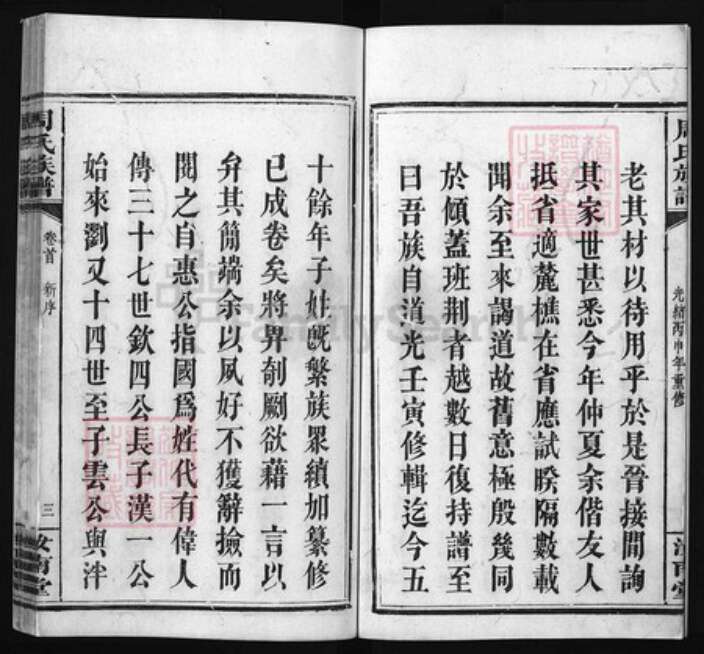 周氏族譜
光緒丙申年重修
汝南堂
老其材以待用乎於是晉接閒詢
其家世甚悉今年仲夏余偕友人
抵省適麓樵在省應試暌隔數載
聞余至來謁道故舊意極殷幾同
於傾蓋班荆者越數日復持譜至
曰吾族自道光壬寅修輯迄今五
十餘年子姓旣繁族眾續加纂修
已成卷矣將畀剞劂欲藉一言以
弁其簡端余以夙好不獲辭撿而
閱之自惠公指國爲姓代有偉人
傳三十七世欽四公長子漢一公
始來瀏又十四世至子雲公與泮
周氏族譜
卷首 新序
三
汝南堂
FamilySearch